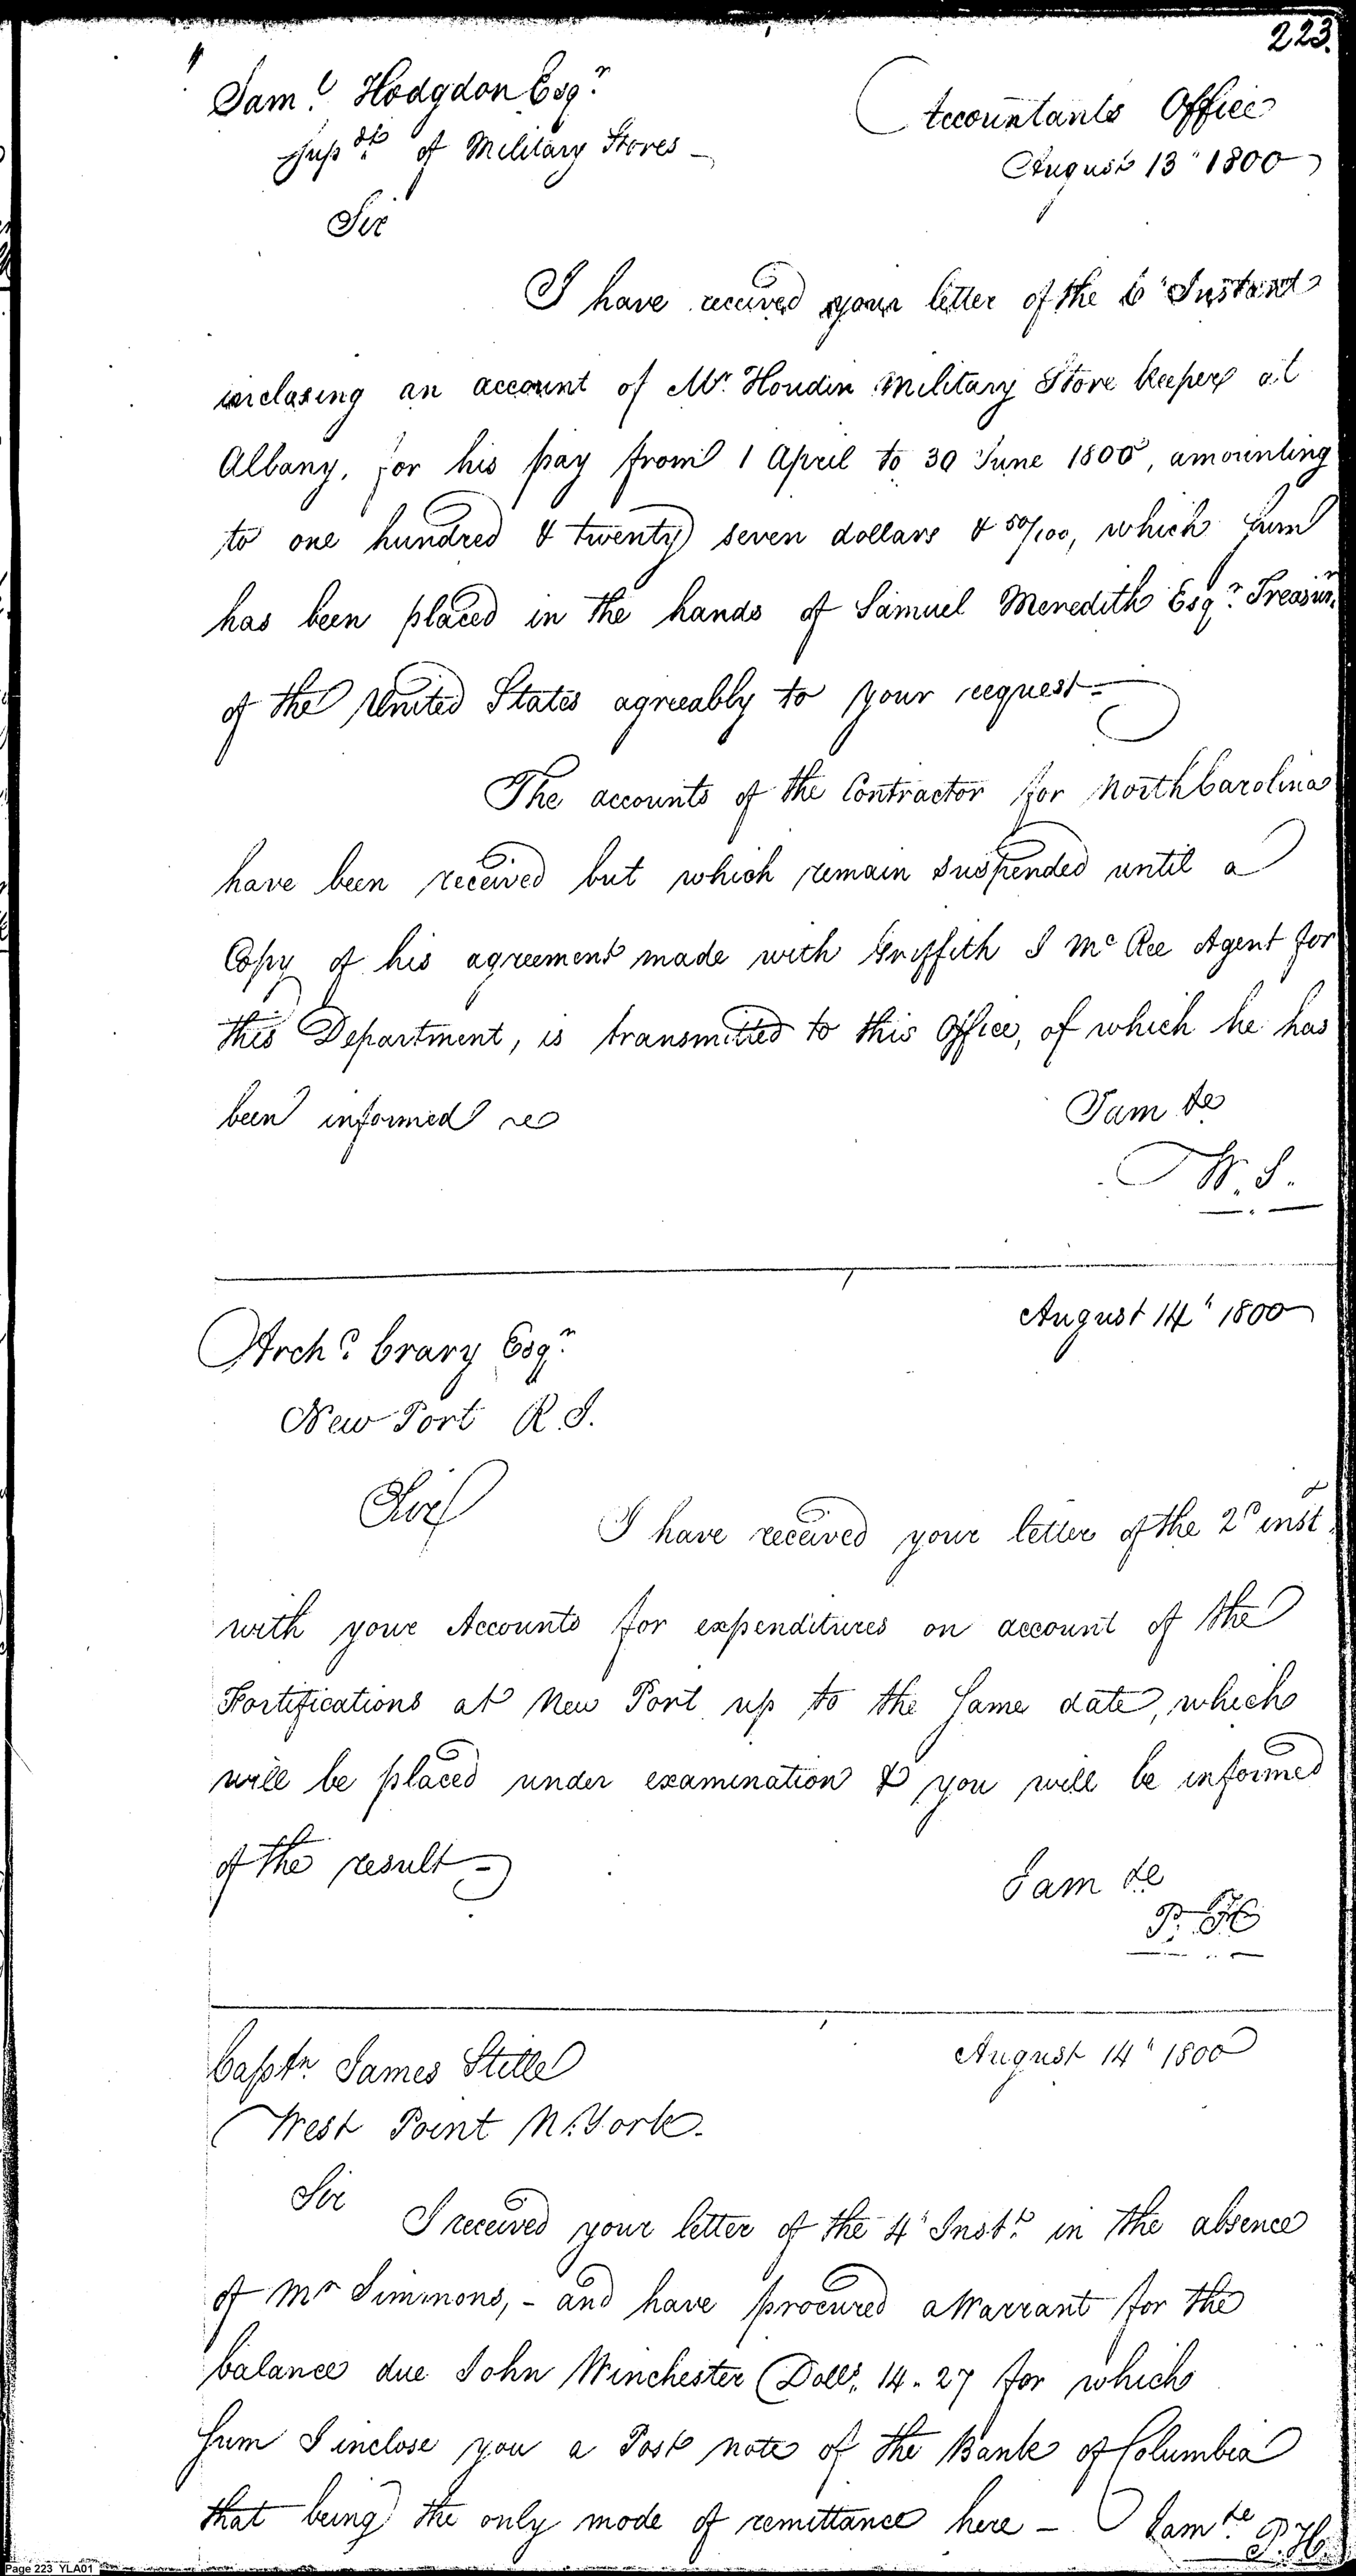 223.
Sam.l Hodgdon Esq.r
Sup.dt of Military Stores
Accountants Office
August 13" 1800
Sir
I have received your letter of the 6" Instant
inclosing an account of Mr. Houdin Military Store keeper at
Albany, for his pay from 1 April to 30 June 1800, amounting
to one hundred & twenty seven dollars & 50/100, which sum
has been placed in the hands of Samuel Meredith Esq.r Treasur.r
of the United States agreeably to your request—
The accounts of the Contractor for North Carolina
have been received but which remain suspended until a
Copy of his agreement made with Griffith J Mc Ree Agent for
this Department, is transmitted to this Office, of which he has
been informed
I am &c
W. S.
August 14" 1800
Arch.d Crary Esq.r
New Port R. I.
Sir
I have received your letter of the 2d inst.
with your Accounts for expenditures on account of the
Fortifications at New Port up to the same date, which
will be placed under examination & you will be informed
of the result—
I am &c
P. H
Capt.n James Stille
West Point N. York.
August 14" 1800
Sir
I received your letter of the 4" Inst.t in the absence
of Mr Simmons, - and have procured a Warrant for the
balance due John Winchester Dolls. 14.27 for which
sum I inclose you a Post note of the Bank of Columbia
that being the only mode of remittance here — I am &c
P. H.
Page 223 YLA01